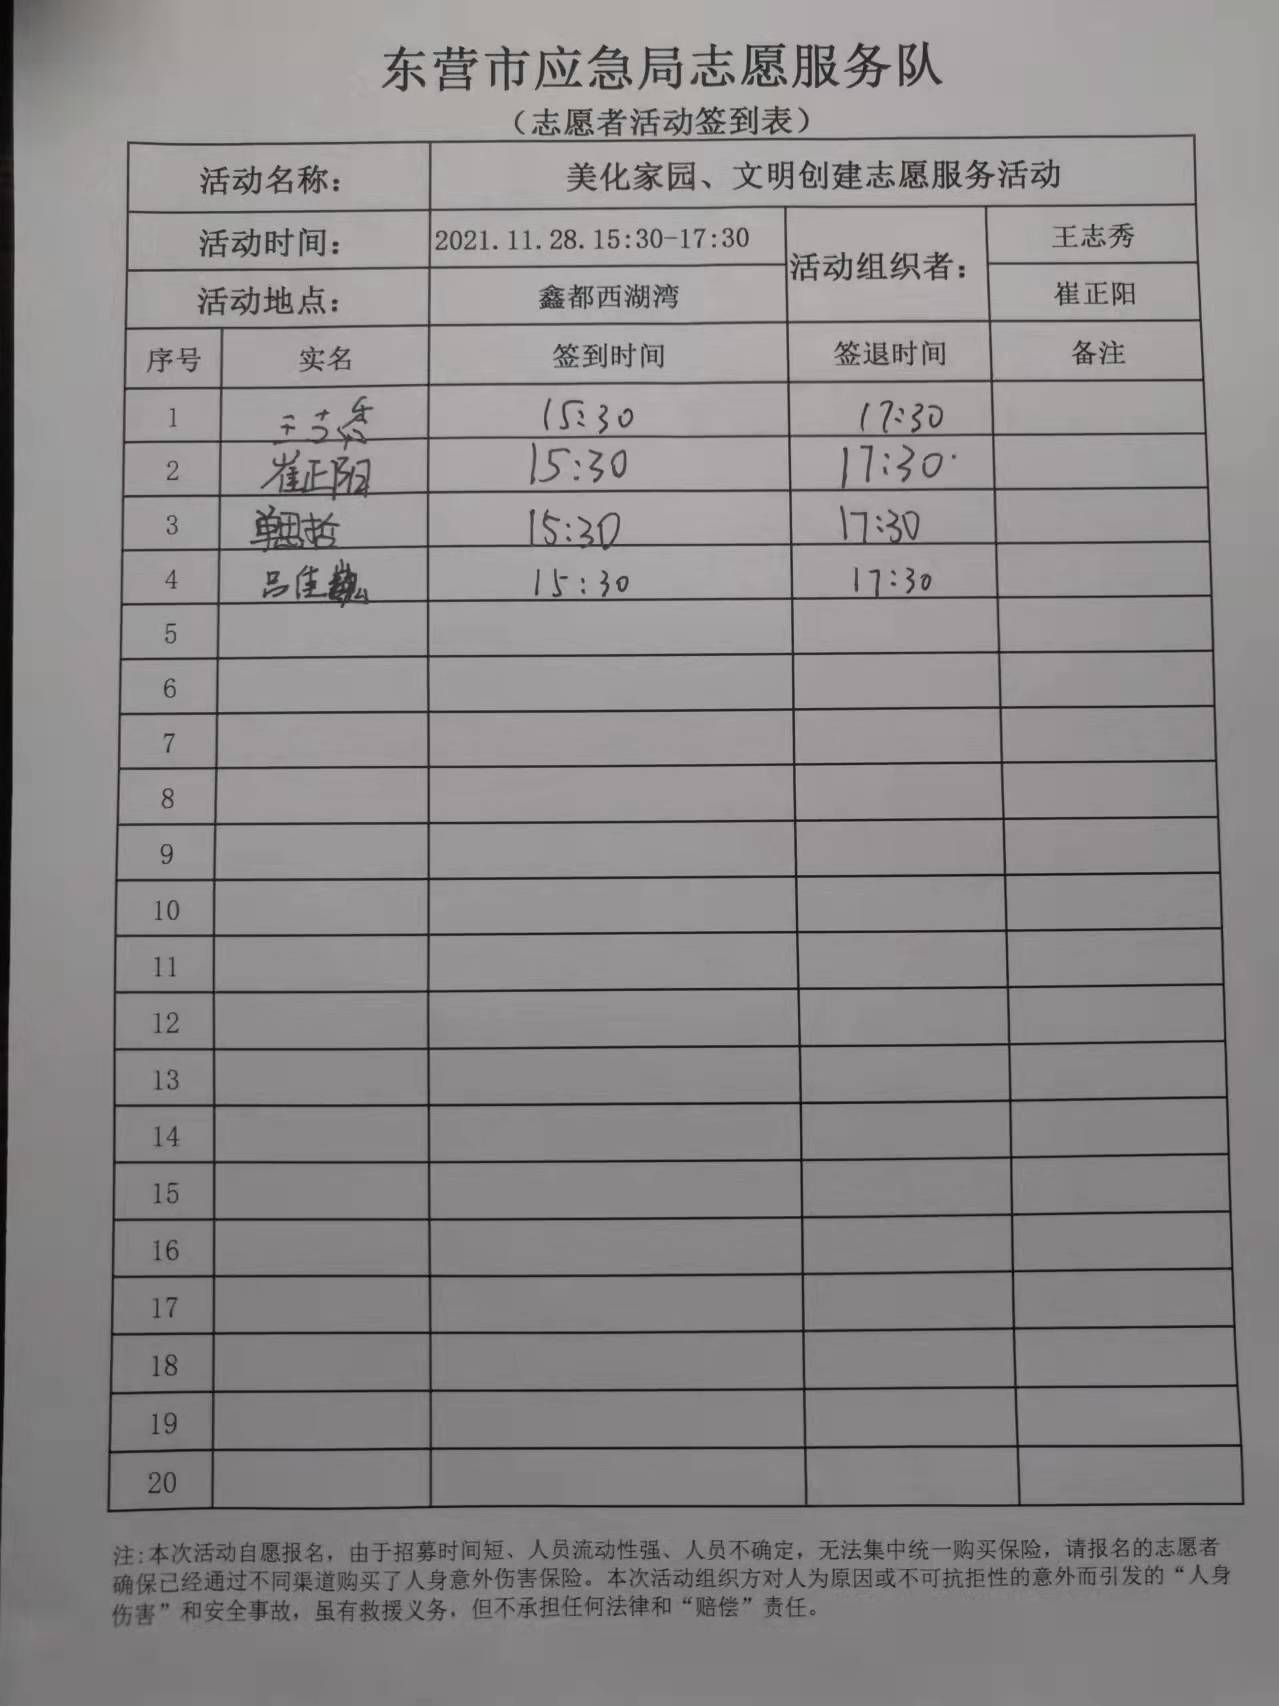 东营市应急局志愿服务队
（志愿者活动签到表）
活动名称： 美化家园、文明创建志愿服务活动
活动时间： 2021.11.28.15:30-17:30 活动组织者： 王志秀
活动地点： 鑫都西湖湾 崔正阳
序号 实名 签到时间 签退时间 备注
1 王志秀 15:30 17:30
2 崔正阳 15:30 17:30
3 单思哲 15:30 17:30
4 吕佳 15:30 17:30
5
6
7
8
9
10
11
12
13
14
15
16
17
18
19
20
注:本次活动自愿报名，由于招募时间短、人员流动性强、人员不确定，无法集中统一购买保险，请报名的志愿者
确保己经通过不同渠道购买了人身意外伤害保险。本次活动组织方对人为原因或不可抗拒性的意外而引发的“人身
伤害”和安全事故，虽有救援义务，但不承担任何法律和“赔偿”责任。